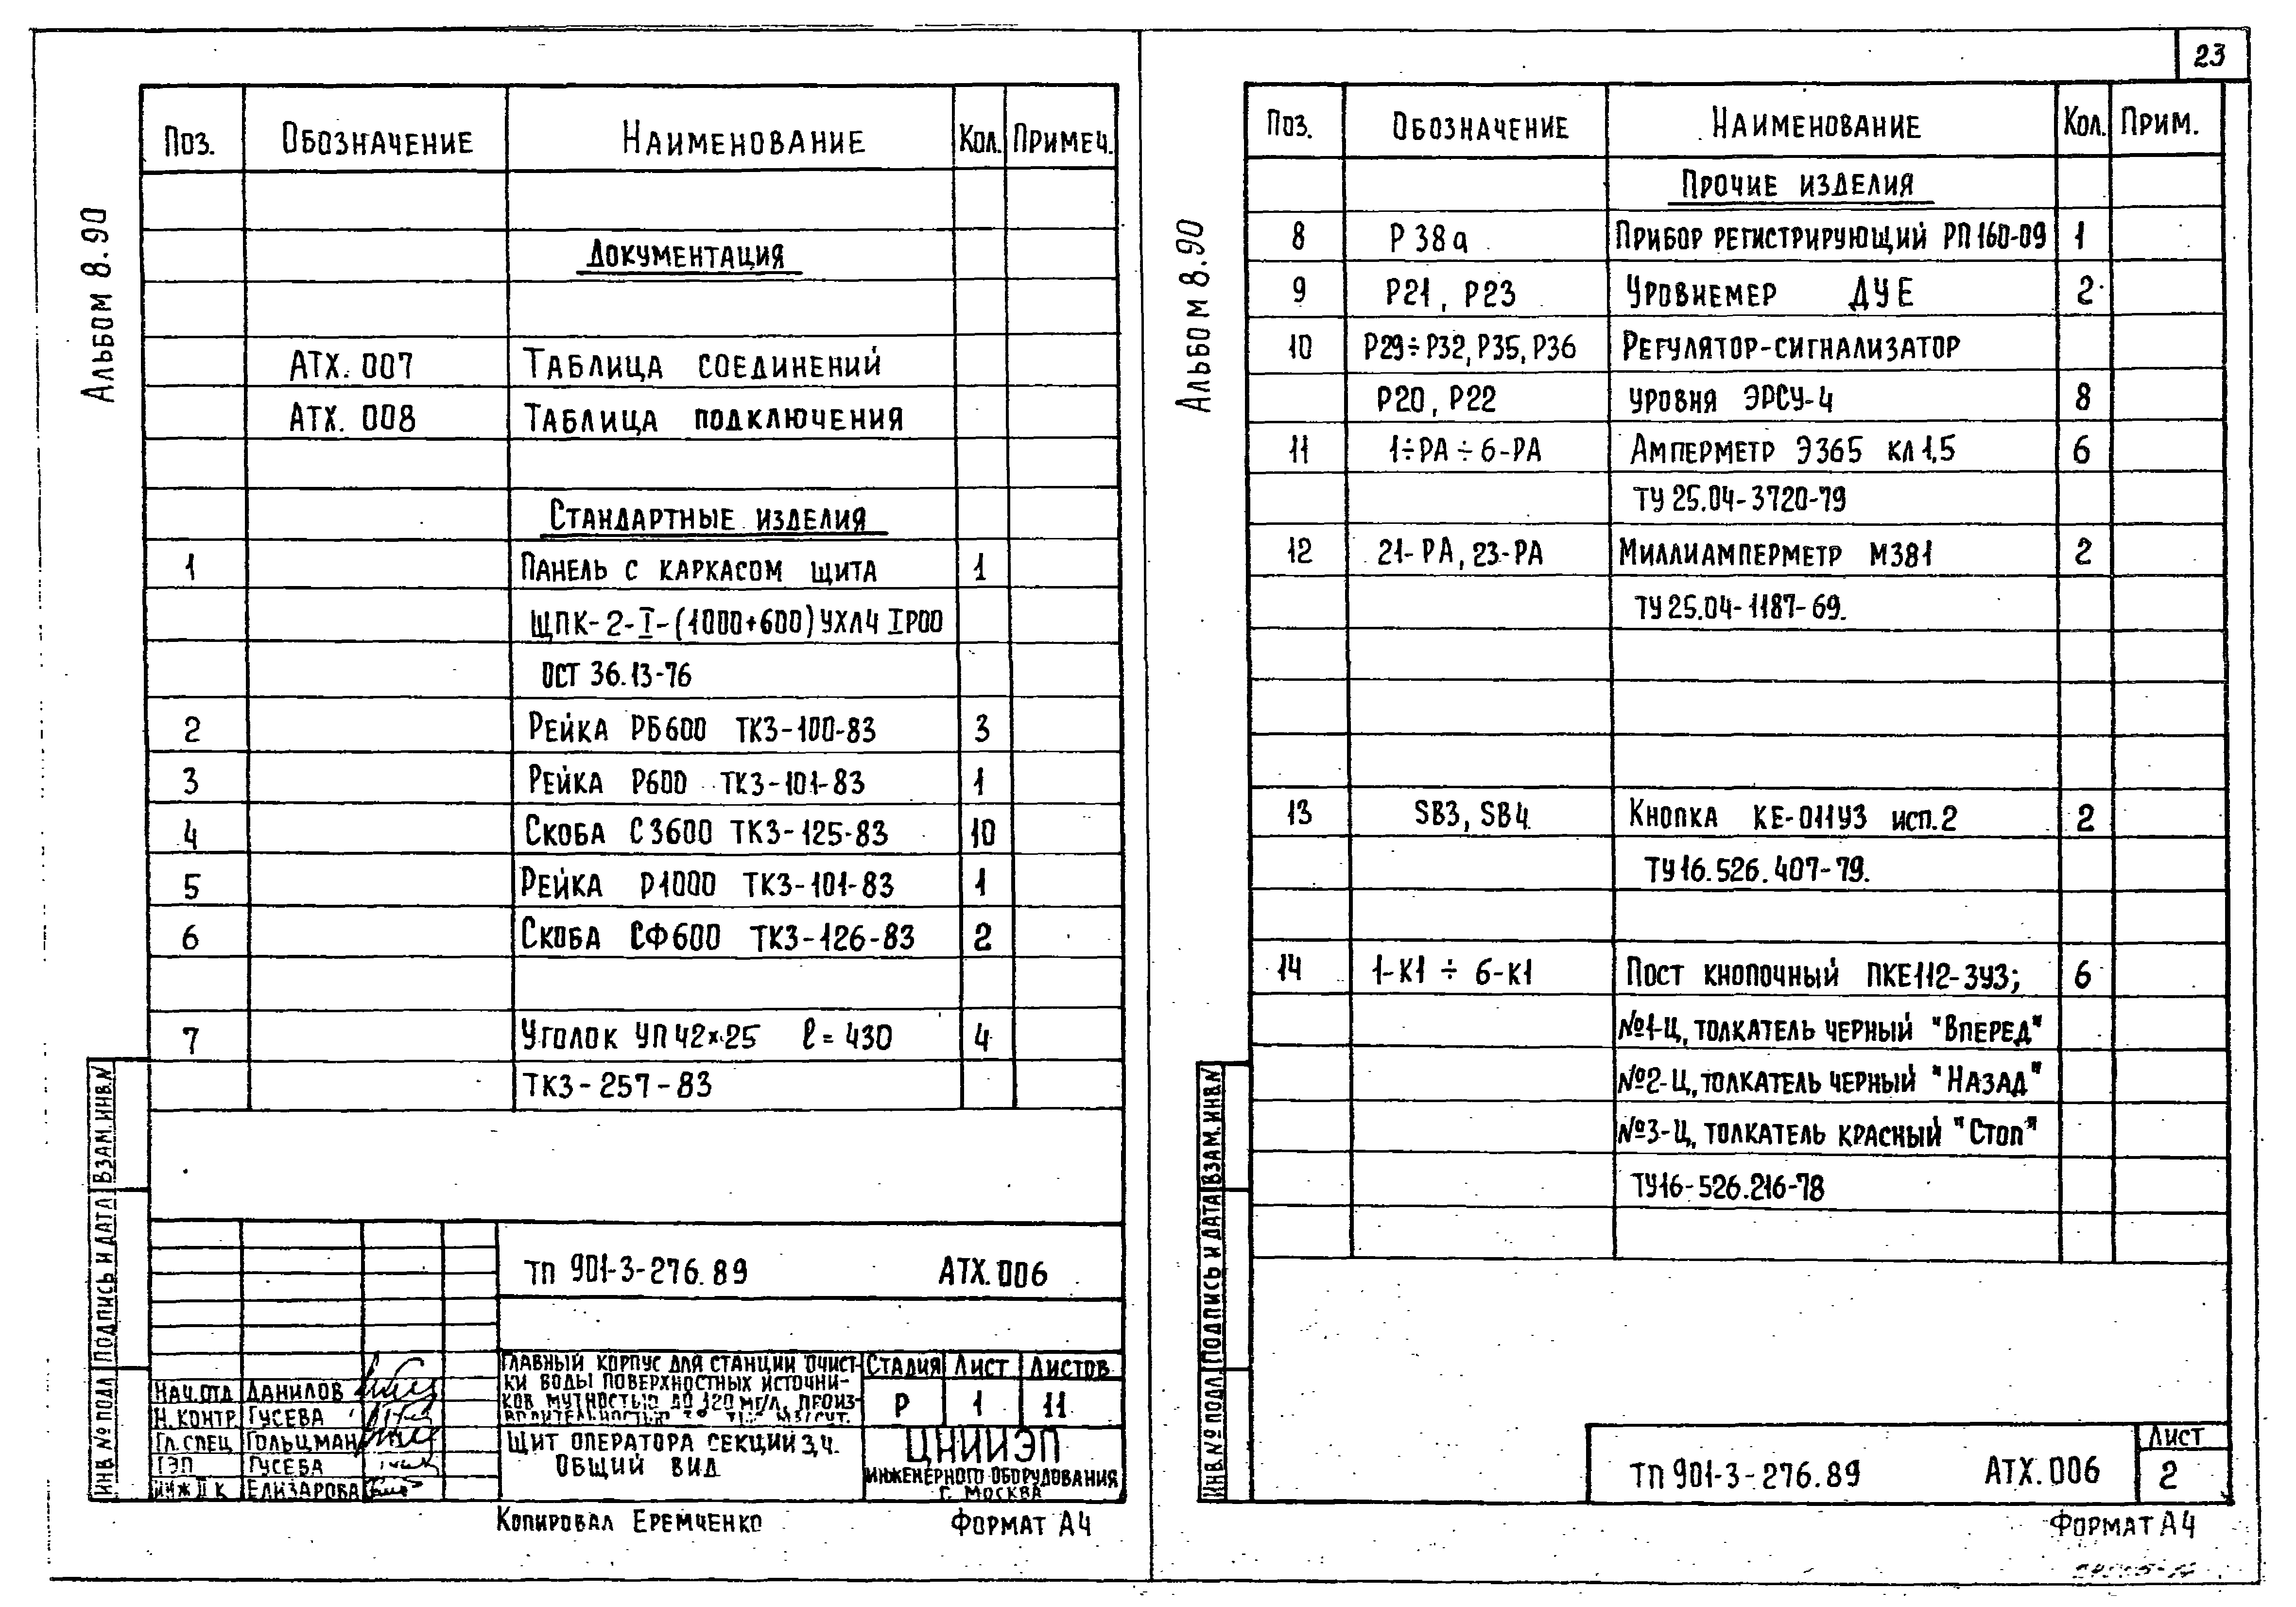 23
Альбом 8.90
Поз. Обозначение Наименование Кол. Примеч.
Документация
АТХ.007 Таблица соединений
АТХ.008 Таблица подключения
Стандартные изделия
1 Панель с каркасом щита 1
ЩПК-2-I-(1000+600)УХЛ4 IP00
ОСТ 36.13-76
2 Рейка РБ600 ТК3-100-83 3
3 Рейка Р600 ТК3-101-83 1
4 Скоба С3600 ТК3-125-83 10
5 Рейка Р1000 ТК3-101-83 1
6 Скоба СФ600 ТК3-126-83 2
7 Уголок УП42×25 ℓ=430 4
ТК3-257-83
Инв.№ подл. Подпись и дата Взам.инв.N
ТП 901-3-276.89 АТХ.006
Главный корпус для станции очист-
ки воды поверхностных источни-
ков мутностью до 120 мг/л, произ-
Стадия Лист Листов
Р 1 11
Нач.отд Данилов
Н.контр Гусева
Гл.спец Гольцман
ГЭП Гусева
инж II к Елизарова
Щит оператора секций 3,4.
Общий вид
ЦНИИЭП
инженерного оборудования
г. Москва
Копировал Еремченко Формат А4
Альбом 8.90
Поз. Обозначение Наименование Кол. Прим.
Прочие изделия
8 Р38а Прибор регистрирующий РП160-09 1
9 Р21, Р23 Уровнемер ДУЕ 2
10 Р29÷Р32, Р35, Р36 Регулятор-сигнализатор
Р20, Р22 уровня ЭРСУ-4 8
11 1÷РА÷6-РА Амперметр Э365 кл 1,5 6
ТУ 25.04-3720-79
12 21-РА, 23-РА Миллиамперметр М381 2
ТУ 25.04-1187-69.
13 SB3, SB4 Кнопка КЕ-011У3 исп.2 2
ТУ16.526.407-79.
14 1-К1÷6-К1 Пост кнопочный ПКЕ112-3У3; 6
№1-Ц, толкатель черный "Вперед"
№2-Ц, толкатель черный "Назад"
№3-Ц, толкатель красный "Стоп"
ТУ16-526.216-78
Инв.№ подл. Подпись и дата Взам.инв.N
ТП 901-3-276.89 АТХ.006
Лист
2
Формат А4